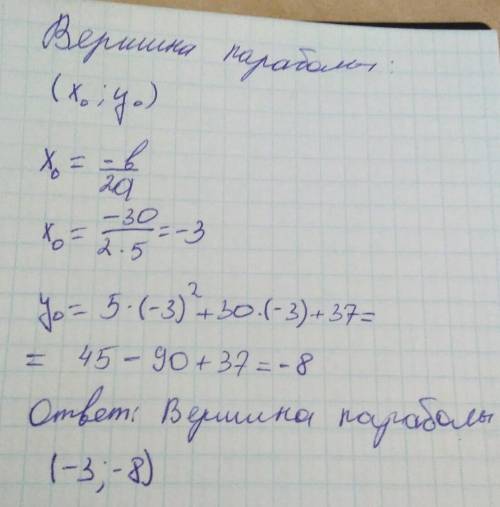 Вершина параболы:
(x₀; y₀)
x₀ = -b/2a
x₀ = -30/2·5 = -3
y₀ = 5·(-3)² + 30·(-3) + 37 =
= 45 - 90 + 37 = -8
Ответ: Вершина параболы
(-3; -8)